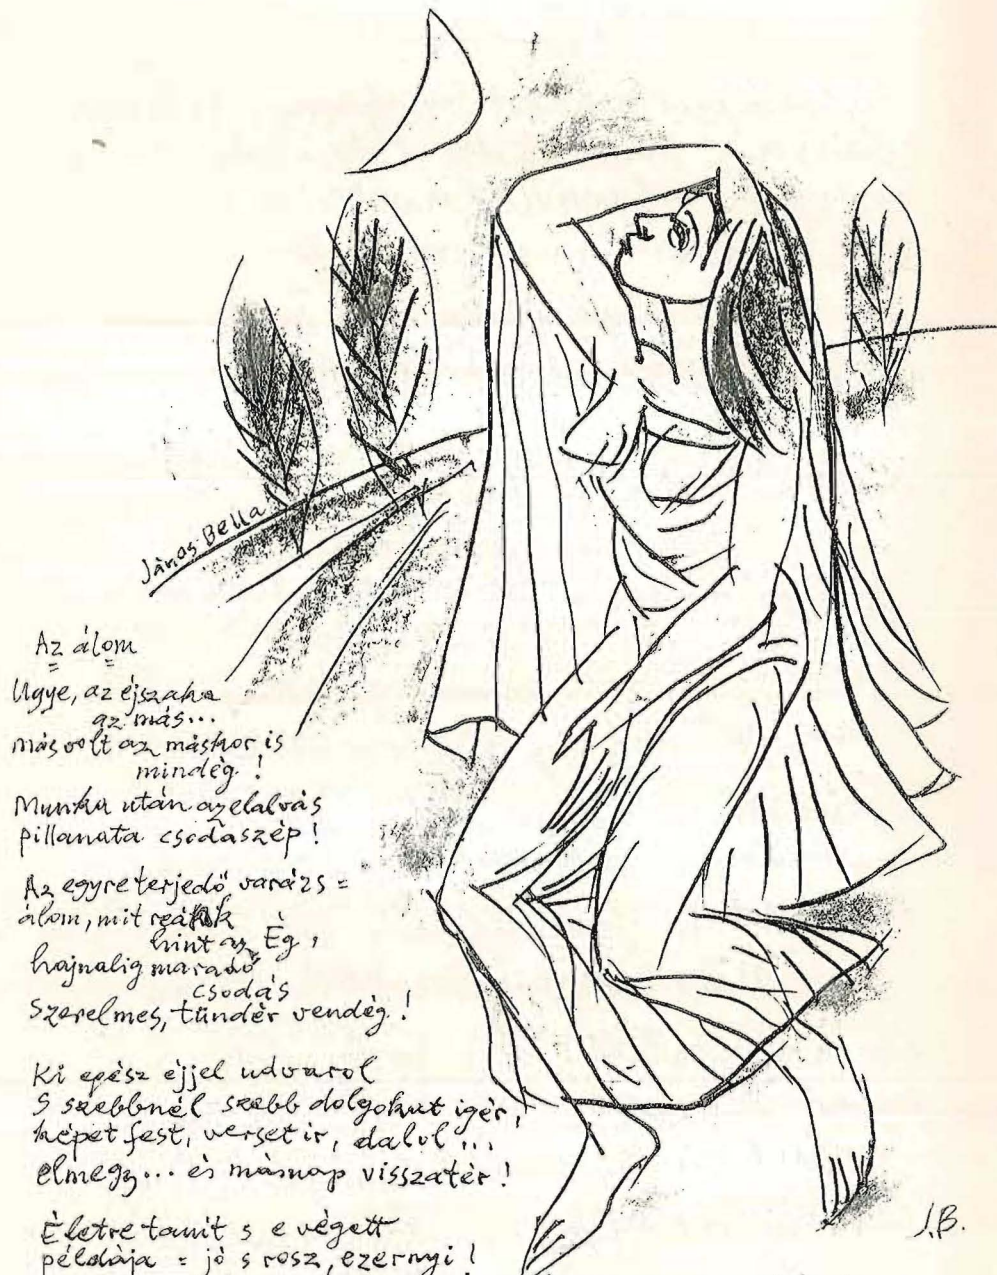 János Bella
Az álom
Ugye, az éjszaka
az más...
más volt az máskor is
mindég !
Munka után az elalvás
pillanata csodaszép !
Az egyre terjedő varázs =
álom, mit reánk
hint az Ég ,
hajnalig maradó
csodás
Szerelmes, tündér vendég !
Ki egész éjjel udvarol
S szebbnél szebb dolgokat igér,
képet fest, verset ir, dalol ...
elmegy... és másnap visszatér !
Életre tanit s e végett
példája = jó s rosz, ezernyi !
J.B.